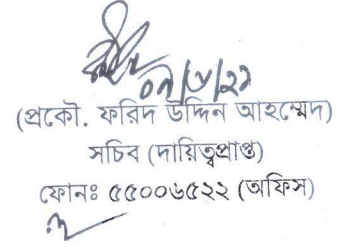 (প্রকৌ. ফরিদ উদ্দিন আহম্মেদ)
সচিব (দায়িত্বপ্রাপ্ত)
ফোনঃ ৫৫০০৬৫২২ (অফিস)